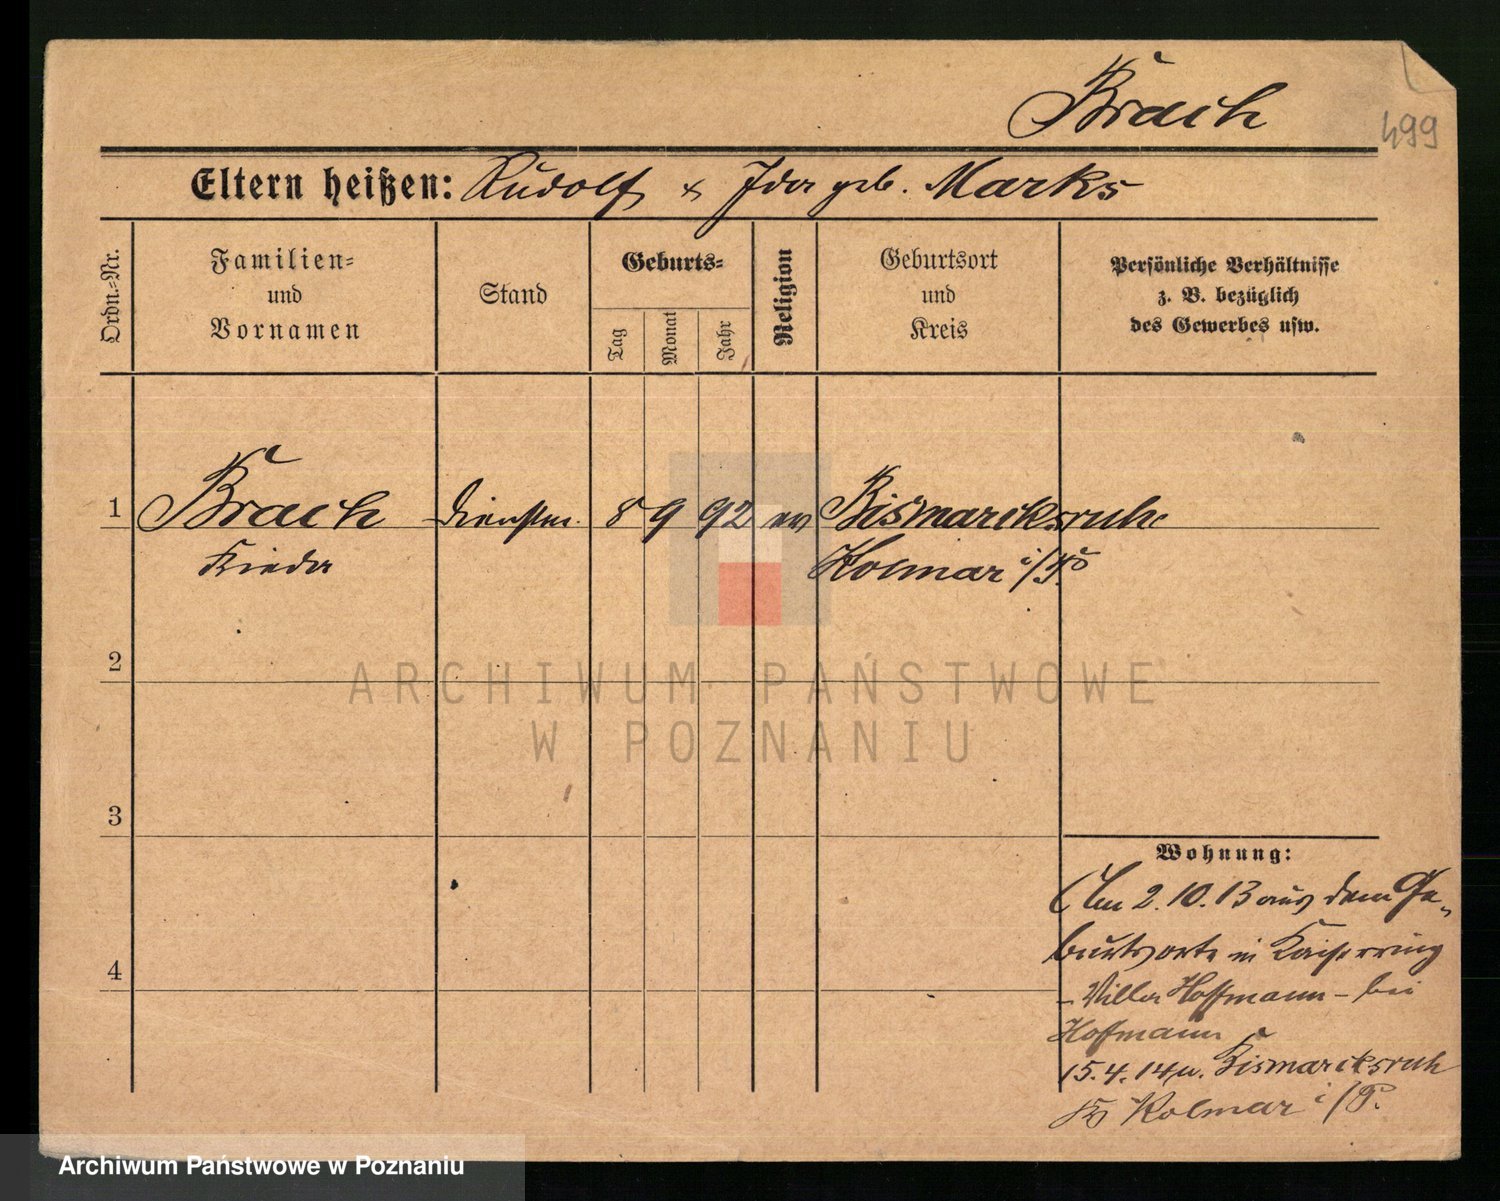 Brach
499
Eltern heißen: Rudolf & Ida geb. Marks
Ordn.-Nr.
Familien-
und
Vornamen
Stand
Geburts-
Tag
Monat
Jahr
Religion
Geburtsort
und
Kreis
Persönliche Verhältnisse
z. B. bezüglich
des Gewerbes usw.
1 Brach Dienstm. 8 9 92 ev Bismarcksruh
Kolmar i/P.
2
ARCHIWUM PAŃSTWOWE
W POZNANIU
3
Wohnung:
Am 2.10.13 aus dem Ge-
burtsorte in Kaiserring
- Villa Hoffmann - bei
Hoffmann
4
15.4.14 n. Bismarcksruh
Kr Kolmar i/P.
Archiwum Państwowe w Poznaniu